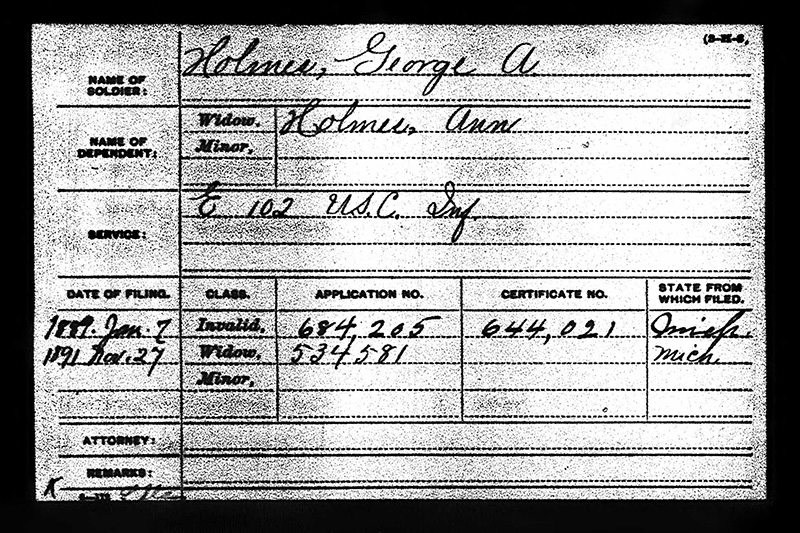 (3-H-6,
NAME OF SOLDIER: Holmes, George A
NAME OF DEPENDENT: Widow, Holmes, Ann
Minor,
SERVICE: E 102 U.S.C. Inf.
DATE OF FILING. CLASS. APPLICATION NO. CERTIFICATE NO. STATE FROM WHICH FILED.
1889. Jan. 7 Invalid, 684,205 644,021 Mich.
1891 Nov. 27 Widow, 534581 Mich.
Minor,
ATTORNEY:
REMARKS:
K